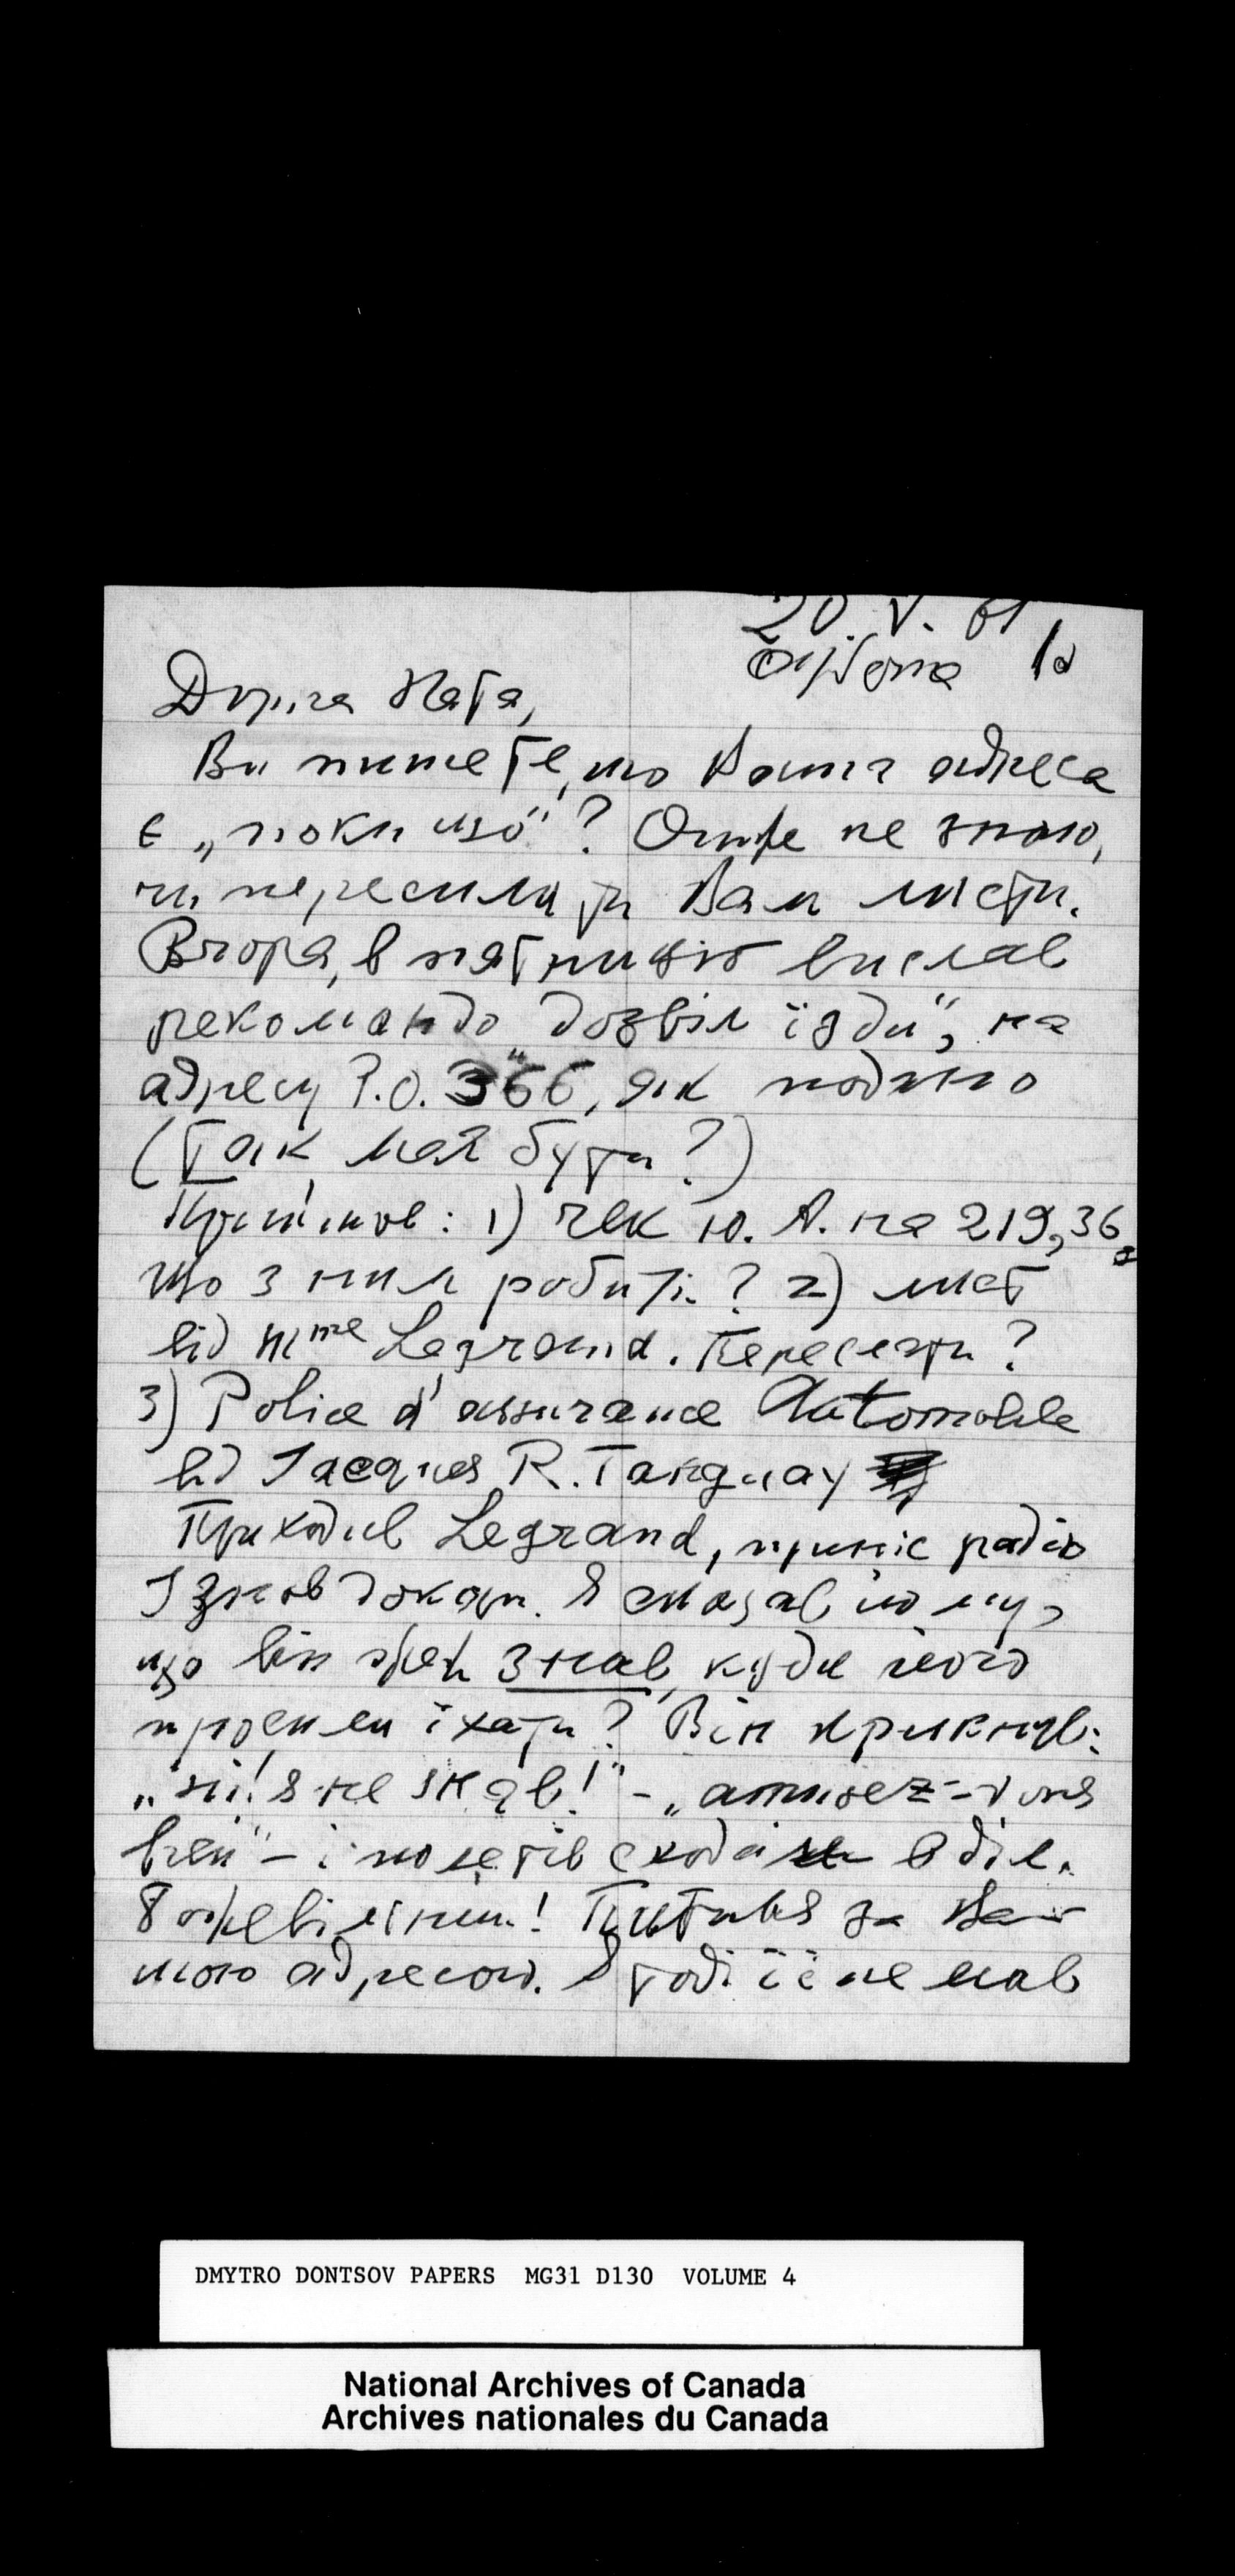 20. V. 61
субота
Дорога Ната,
Ви пишете, що Ваша адреса
є „поки що"? Отже не знаю,
чи пересилати Вам листи.
Вчора, в пятницю вислав
рекомандо „дозвіл їзди", на
адресу P.O. 366, як подано
(Так має бути?)
Прийшов: 1) чек Ю. А. на 219,36,
що з ним робити? 2) лист
від Mme Legrand. Переслати?
3) Police d'assurance Automobile
від Jacques R. Tanguay
Приходив Legrand, приніс радіо
І знов докори. Я сказав йому,
що він знав, куди його
просили їхати? Він крикнув:
„ні! я не знав!" – „amusez-vous
bien" – і полетів сходами в діл.
Божевільний! Питався за Ва-
шою адресою. Я тоді її не мав
DMYTRO DONTSOV PAPERS MG31 D130 VOLUME 4
National Archives of Canada
Archives nationales du Canada